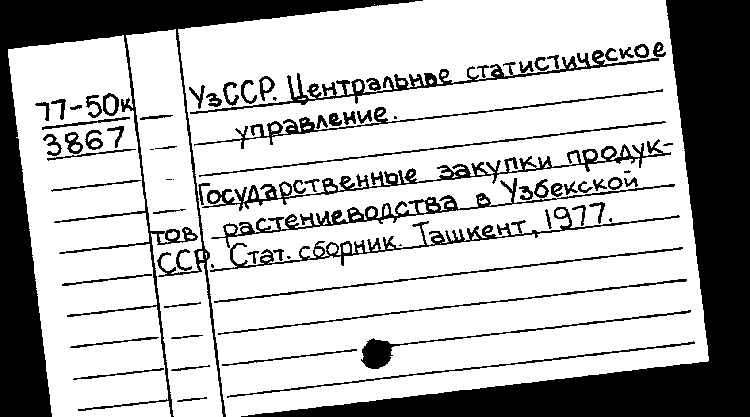 77-50к
3867
УзССР. Центральные статистическое
управление.
Государственные закупки продук-
тов растениеводства в Узбекской
ССР. Стат. сборник. Ташкент, 1977.